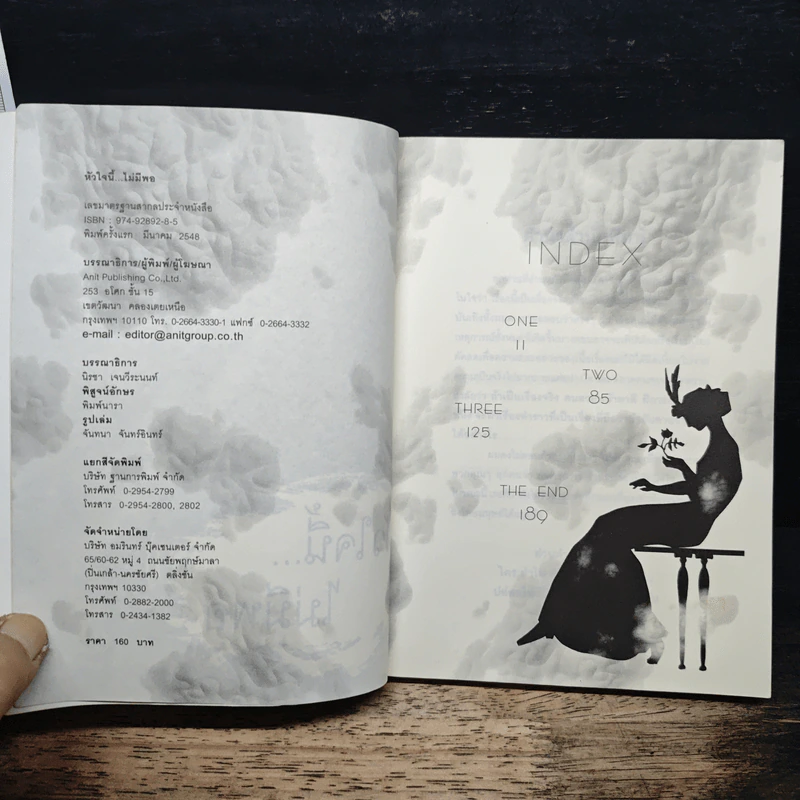 หัวใจนี้...ไม่มีพอ
เลขมาตรฐานสากลประจำหนังสือ
ISBN : 974-92892-8-5
พิมพ์ครั้งแรก มีนาคม 2548
บรรณาธิการ/ผู้พิมพ์/ผู้โฆษณา
Anit Publishing Co.,Ltd.
253 อโศก ชั้น 15
เขตวัฒนา คลองเตยเหนือ
กรุงเทพฯ 10110 โทร. 0-2664-3330-1 แฟกซ์ 0-2664-3332
e-mail : editor@anitgroup.co.th
บรรณาธิการ
นิรชา เจนวีระนนท์
พิสูจน์อักษร
พิมพ์นารา
รูปเล่ม
จันทนา จันทร์อินทร์
แยกสีจัดพิมพ์
บริษัท ฐานการพิมพ์ จำกัด
โทรศัพท์ 0-2954-2799
โทรสาร 0-2954-2800, 2802
จัดจำหน่ายโดย
บริษัท อมรินทร์ บุ๊คเซนเตอร์ จำกัด
65/60-62 หมู่ 4 ถนนชัยพฤกษ์มาลา
(ปิ่นเกล้า-นครชัยศรี) ตลิ่งชัน
กรุงเทพฯ 10330
โทรศัพท์ 0-2882-2000
โทรสาร 0-2434-1382
ราคา 160 บาท
INDEX
ONE
11
TWO
85
THREE
125
THE END
189